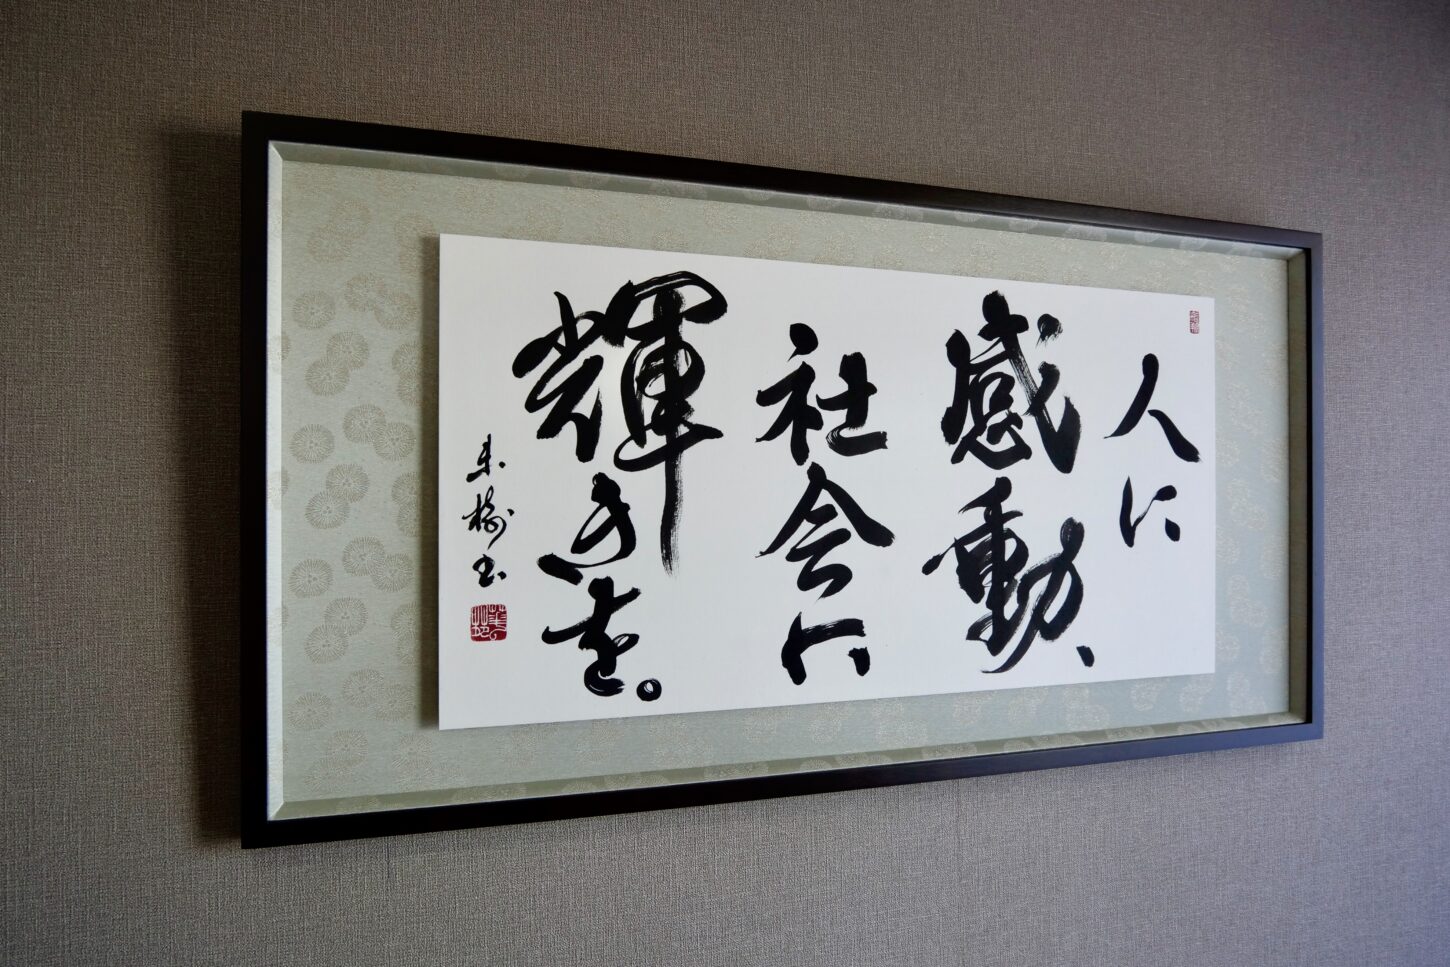 人に
感動、
社会に
輝きを。
未樹書